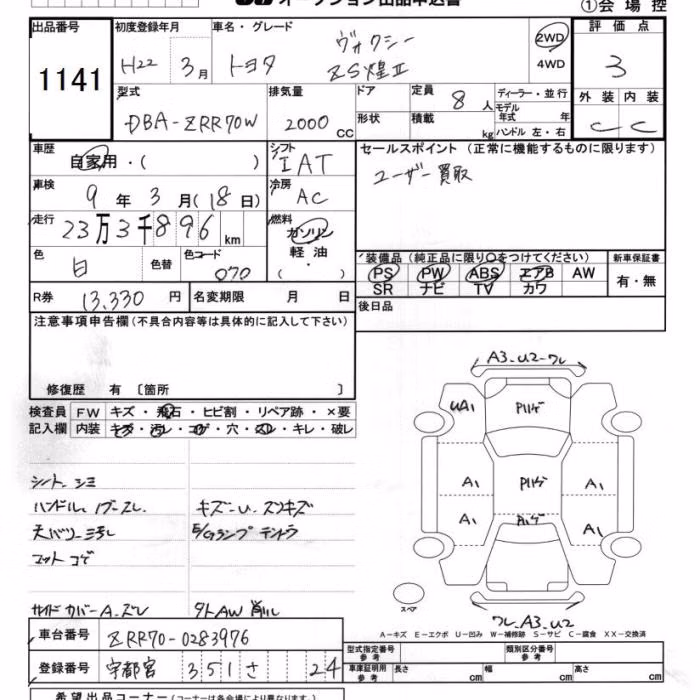 オークション出品申込書
①会場控
出品番号
1141
初度登録年月
H22 3月
車名・グレード
トヨタ ヴォクシー
ZS煌Ⅱ
2WD
4WD
評価点
3
外装 内装
C C
型式
DBA-ZRR70W
排気量
2000 CC
ドア
形状
定員 8 人
積載 kg
ディーラー・並行
モデル年式 年
ハンドル 左・右
車歴
自家用・( )
車検
9年3月(18日)
走行
23万3千896 km
色 白
色替
色コード 070
シフト
IAT
冷房
AC
燃料
ガソリン
軽油
( ・ )
セールスポイント (正常に機能するものに限ります)
ユーザー買取
装備品 (純正品に限り○をつけてください)
PS PW ABS エアB AW
SR ナビ TV カワ
新車保証書
有・無
後日品
R券 13,330 円
名変期限 月 日
注意事項申告欄 (不具合内容等は具体的に記入して下さい)
修復歴 有 〔箇所 〕
検査員 FW キズ・飛石・ヒビ割・リペア跡・×要
記入欄 内装 キズ・汚レ・コゲ・穴・スレ・キレ・破レ
シート シミ
ハンドル
キズ-U.
天バリ
E/Gランプ
マット コゲ
サイドカバー A.ズレ
タトAW 削レ
車台番号 ZRR70-0283976
登録番号 宇都宮 351 さ 24
A3-U2-ワレ
UA1
A1
A1
A1
A1
スペア
ワレ-A3-U2
A－キズ E－エクボ U－凹み W－補修跡 S－サビ C－腐食 XX－交換済
型式指定番号
参考
類別区分番号
参考
車庫証明用
参考
長さ cm
幅 cm
高さ cm
希望出品コーナー